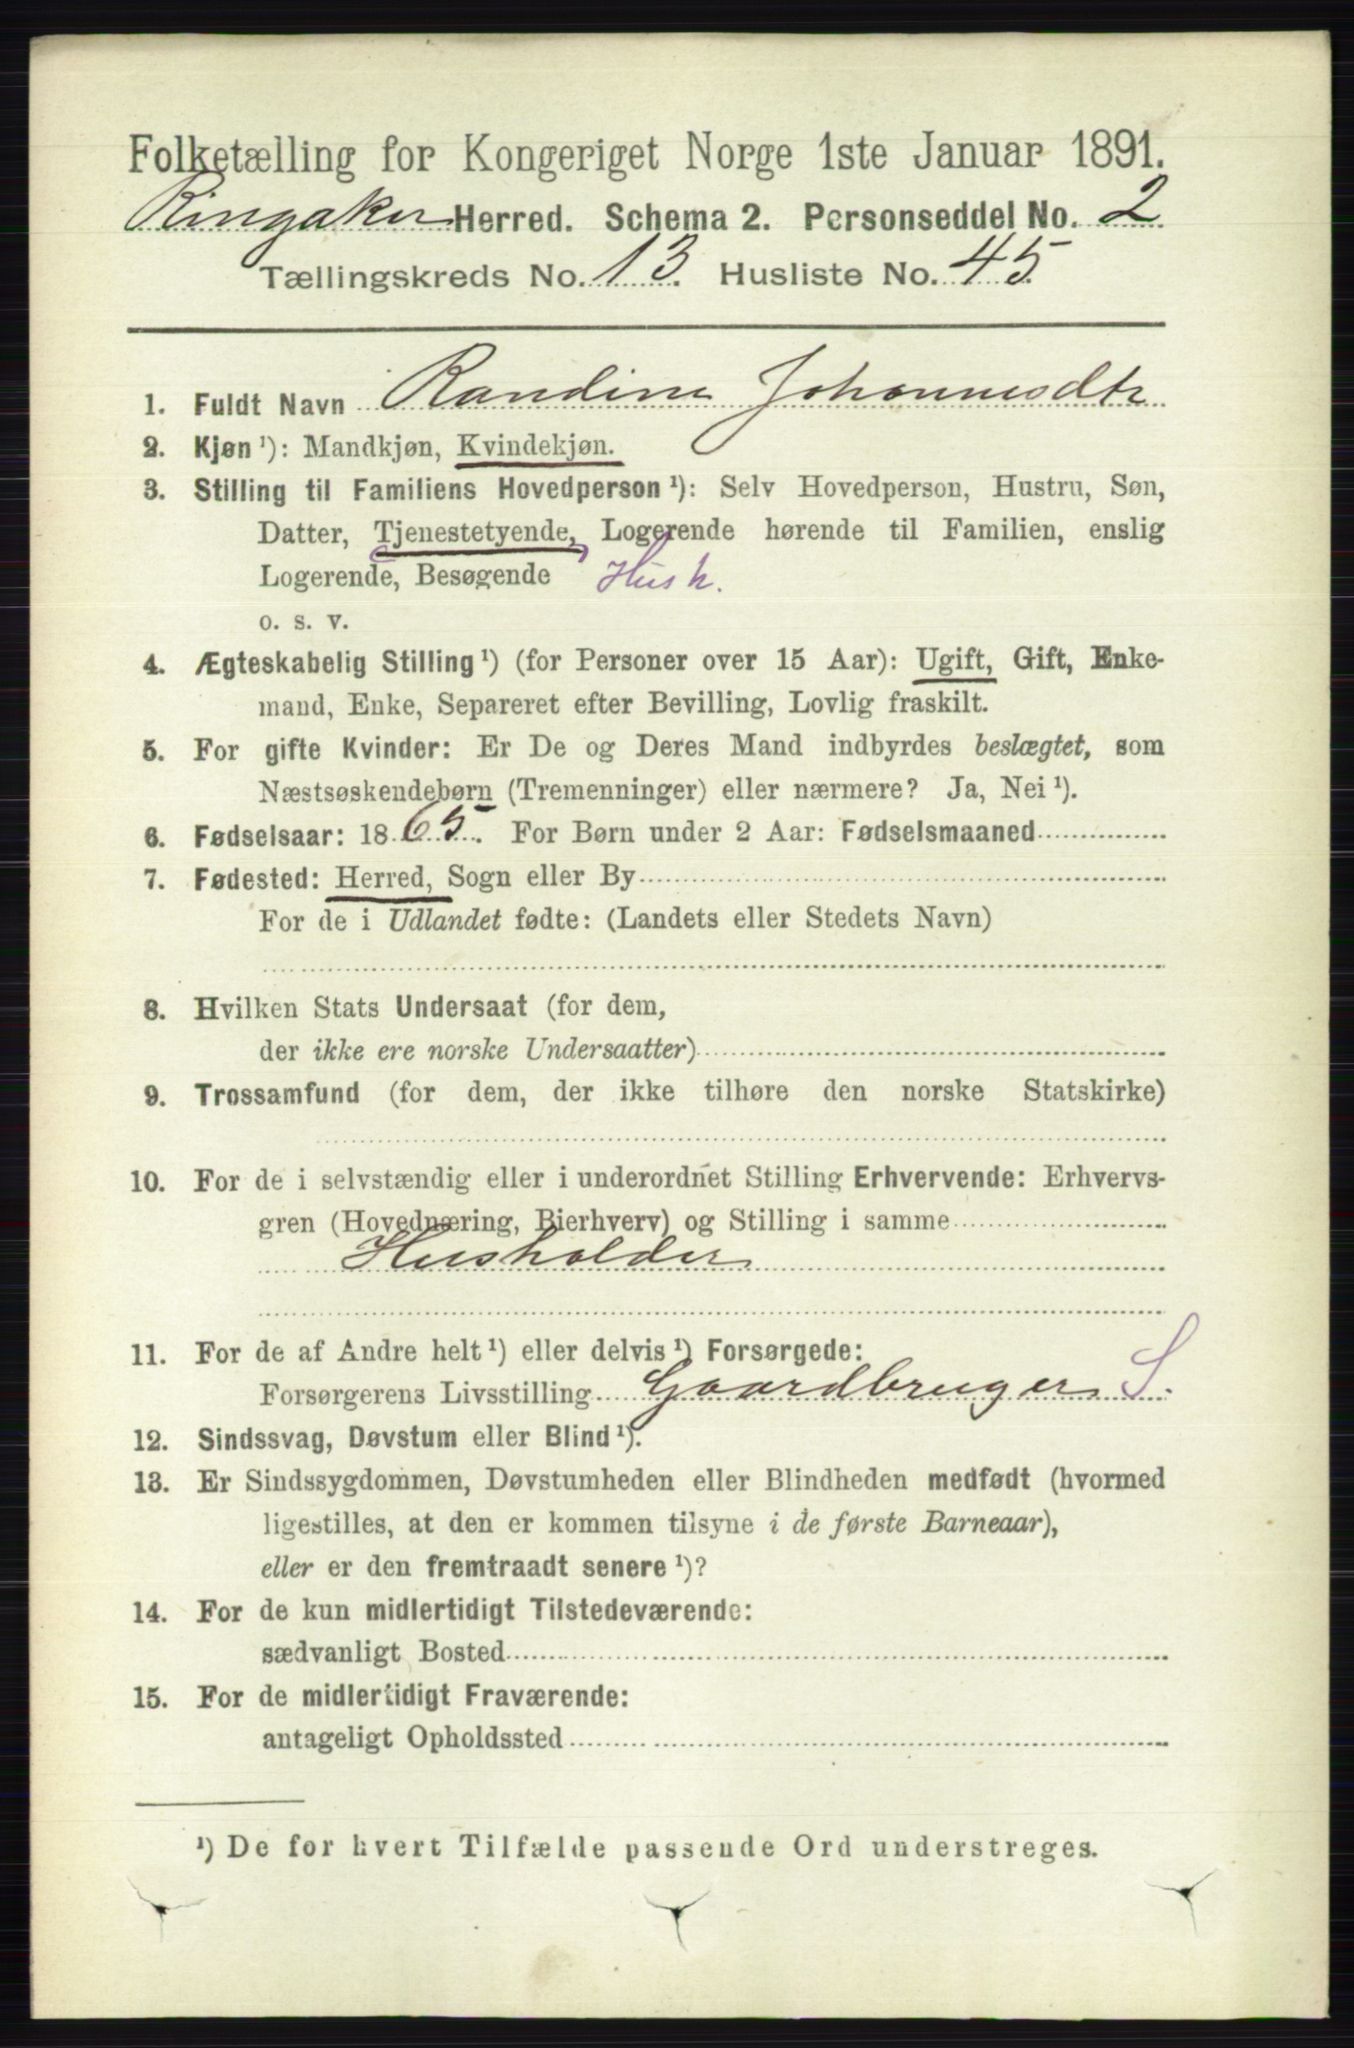 Folketælling for Kongeriget Norge 1ste Januar 1891.
Ringsaker Herred. Schema 2. Personseddel No. 2
Tællingskreds No. 13. Husliste No. 45
1. Fuldt Navn Randine Johannesdtr
2. Kjøn¹): Mandkjøn, Kvindekjøn.
3. Stilling til Familiens Hovedperson¹): Selv Hovedperson, Hustru, Søn,
Datter, Tjenestetyende, Logerende hørende til Familien, enslig
Logerende, Besøgende Hush.
o. s. v.
4. Ægteskabelig Stilling¹) (for Personer over 15 Aar): Ugift, Gift, Enke-
mand, Enke, Separeret efter Bevilling, Lovlig fraskilt.
5. For gifte Kvinder: Er De og Deres Mand indbyrdes beslægtet, som
Næstsøskendebørn (Tremenninger) eller nærmere? Ja, Nei¹).
6. Fødselsaar: 1865. For Børn under 2 Aar: Fødselsmaaned
7. Fødested: Herred, Sogn eller By
For de i Udlandet fødte: (Landets eller Stedets Navn)
8. Hvilken Stats Undersaat (for dem,
der ikke ere norske Undersaatter)
9. Trossamfund (for dem, der ikke tilhøre den norske Statskirke)
10. For de i selvstændig eller i underordnet Stilling Erhvervende: Erhvervs-
gren (Hovednæring, Bierhverv) og Stilling i samme
Husholder
11. For de af Andre helt¹) eller delvis¹) Forsørgede:
Forsørgerens Livsstilling Gaardbruger S.
12. Sindssvag, Døvstum eller Blind¹).
13. Er Sindssygdommen, Døvstumheden eller Blindheden medfødt (hvormed
ligestilles, at den er kommen tilsyne i de første Barneaar),
eller er den fremtraadt senere¹)?
14. For de kun midlertidigt Tilstedeværende:
sædvanligt Bosted
15. For de midlertidigt Fraværende:
antageligt Opholdssted
¹) De for hvert Tilfælde passende Ord understreges.